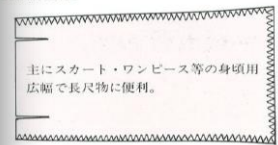 主にスカート・ワンピース等の身頃用
広幅で長尺物に便利。